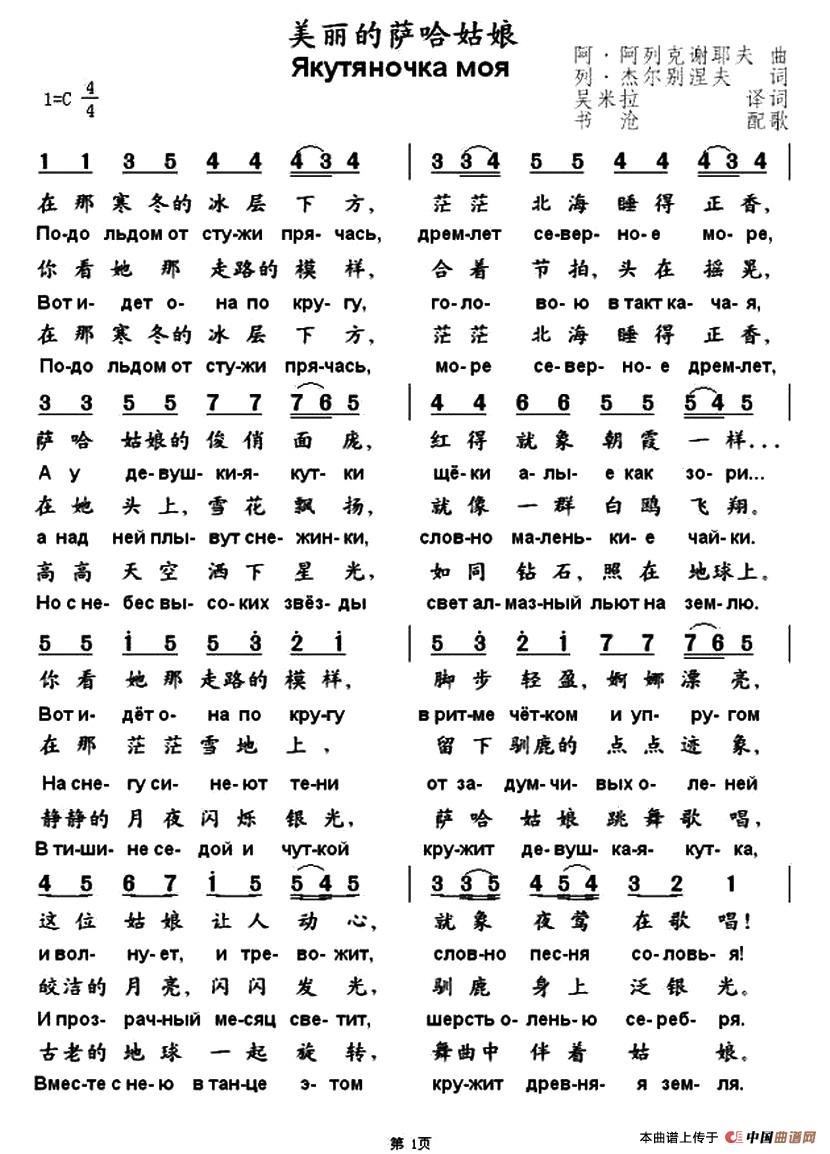 美丽的萨哈姑娘
Якутяночка моя
阿·阿列克谢耶夫 曲
列·杰尔别涅夫 词
吴米拉 译词
书沧 配歌
1=C 4/4
1 1 3 5 4 4 4 3 4 | 3 3 4 5 5 4 4 4 3 4 |
在那寒冬的冰层下方, 茫茫北海睡得正香,
По-до льдом от сту-жи пря-чась, дрем-лет се-вер-но-е мо-ре,
你看她那走路的模样, 合着节拍,头在摇晃,
Вот и-дет о-на по кру-гу, го-ло-вою в такт ка-ча-я,
在那寒冬的冰层下方, 茫茫北海睡得正香,
По-до льдом от сту-жи пря-чась, мо-ре се-вер-но-е дрем-лет,
3 3 5 5 7 7 7 6 5 | 4 4 6 6 5 5 5 4 5 |
萨哈姑娘的俊俏面庞, 红得就象朝霞一样...
А у де-вуш-ки-я-кут-ки щё-ки а-лы-е как зо-ри...
在她头上,雪花飘扬, 就像一群白鸥飞翔。
а над ней плы-вут сне-жин-ки, слов-но ма-лень-ки-е чай-ки.
高高天空洒下星光, 如同钻石,照在地球上。
Но с не-бес вы-со-ких звёз-ды свет ал-маз-ный льют на зем-лю.
5 5 i 5 5 3̇ 2̇ i | 5 3̇ 2̇ i 7 7 7 6 5 |
你看她那走路的模样, 脚步轻盈,婀娜漂亮,
Вот и-дёт о-на по кру-гу в рит-ме чёт-ком и уп-ру-гом
在那茫茫雪地上, 留下驯鹿的点点迹象,
На сне-гу си-не-ют те-ни от за-дум-чи-вых о-ле-ней
静静的月夜闪烁银光, 萨哈姑娘跳舞歌唱,
В ти-ши-не се-дой и чут-кой кру-жит де-вуш-ка-я-кут-ка,
4 5 6 7 i 5 5 4 5 | 3 3 5 4 5 4 3 2 1 |
这位姑娘让人动心, 就象夜莺在歌唱!
и вол-ну-ет, и тре-во-жит, слов-но пес-ня со-ловь-я!
皎洁的月亮,闪闪发光, 驯鹿身上泛银光。
И проз-рач-ный ме-сяц све-тит, шерсть о-лень-ю се-реб-ря.
古老的地球一起旋转, 舞曲中伴着姑娘。
Вмес-те с не-ю в тан-це э-том кру-жит древ-ня-я зем-ля.
第 1页
本曲谱上传于 中国曲谱网